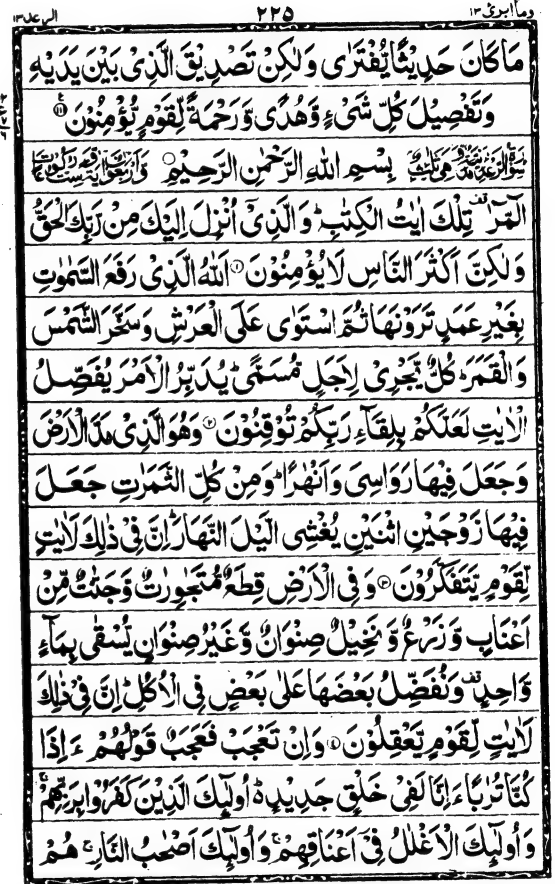 وما ابرئ ١٣ ٢٢٥ الرعد ١٣
مَا كَانَ حَدِيْثًا يُّفْتَرٰى وَلٰكِنْ تَصْدِيْقَ الَّذِيْ بَيْنَ يَدَيْهِ
وَتَفْصِيْلَ كُلِّ شَيْءٍ وَّهُدًى وَّرَحْمَةً لِّقَوْمٍ يُّؤْمِنُوْنَ ۝١١١
بِسْمِ اللّٰهِ الرَّحْمٰنِ الرَّحِيْمِ ۝
الٓمّٓرٰ ۣ تِلْكَ اٰيٰتُ الْكِتٰبِ ؕ وَالَّذِيْٓ اُنْزِلَ اِلَيْكَ مِنْ رَّبِّكَ الْحَقُّ
وَلٰكِنَّ اَكْثَرَ النَّاسِ لَا يُؤْمِنُوْنَ ۝١ اَللّٰهُ الَّذِيْ رَفَعَ السَّمٰوٰتِ
بِغَيْرِ عَمَدٍ تَرَوْنَهَا ثُمَّ اسْتَوٰى عَلَى الْعَرْشِ وَسَخَّرَ الشَّمْسَ
وَالْقَمَرَ ؕ كُلٌّ يَّجْرِيْ لِاَجَلٍ مُّسَمًّى ؕ يُدَبِّرُ الْاَمْرَ يُفَصِّلُ
الْاٰيٰتِ لَعَلَّكُمْ بِلِقَآءِ رَبِّكُمْ تُوْقِنُوْنَ ۝٢ وَهُوَ الَّذِيْ مَدَّ الْاَرْضَ
وَجَعَلَ فِيْهَا رَوَاسِيَ وَاَنْهٰرًا ؕ وَمِنْ كُلِّ الثَّمَرٰتِ جَعَلَ
فِيْهَا زَوْجَيْنِ اثْنَيْنِ يُغْشِي الَّيْلَ النَّهَارَ ؕ اِنَّ فِيْ ذٰلِكَ لَاٰيٰتٍ
لِّقَوْمٍ يَّتَفَكَّرُوْنَ ۝٣ وَفِي الْاَرْضِ قِطَعٌ مُّتَجٰوِرٰتٌ وَّجَنّٰتٌ مِّنْ
اَعْنَابٍ وَّزَرْعٌ وَّنَخِيْلٌ صِنْوَانٌ وَّغَيْرُ صِنْوَانٍ يُّسْقٰى بِمَآءٍ
وَّاحِدٍ ۣ وَنُفَضِّلُ بَعْضَهَا عَلٰى بَعْضٍ فِي الْاُكُلِ ؕ اِنَّ فِيْ ذٰلِكَ
لَاٰيٰتٍ لِّقَوْمٍ يَّعْقِلُوْنَ ۝٤ وَاِنْ تَعْجَبْ فَعَجَبٌ قَوْلُهُمْ ءَاِذَا
كُنَّا تُرٰبًا ءَاِنَّا لَفِيْ خَلْقٍ جَدِيْدٍ ؕ اُولٰٓئِكَ الَّذِيْنَ كَفَرُوْا بِرَبِّهِمْ ۚ
وَاُولٰٓئِكَ الْاَغْلٰلُ فِيْٓ اَعْنَاقِهِمْ ۚ وَاُولٰٓئِكَ اَصْحٰبُ النَّارِ ۚ هُمْ